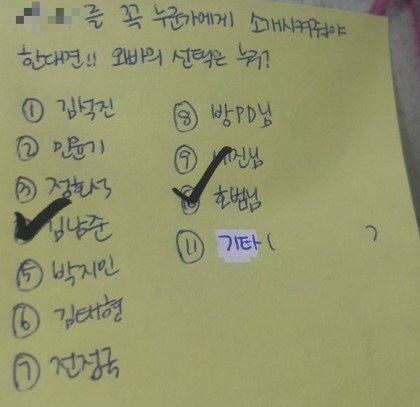 를 꼭 누군가에게 소개시켜줘야
한다면!! 오빠의 선택은 누구?
① 김석진
② 민윤기
③ 정호석
김남준
⑤ 박지민
⑥ 김태형
⑦ 전정국
⑧ 방PD님
⑨ 세진님
⑩ 호범님
⑪ 기타 ( )